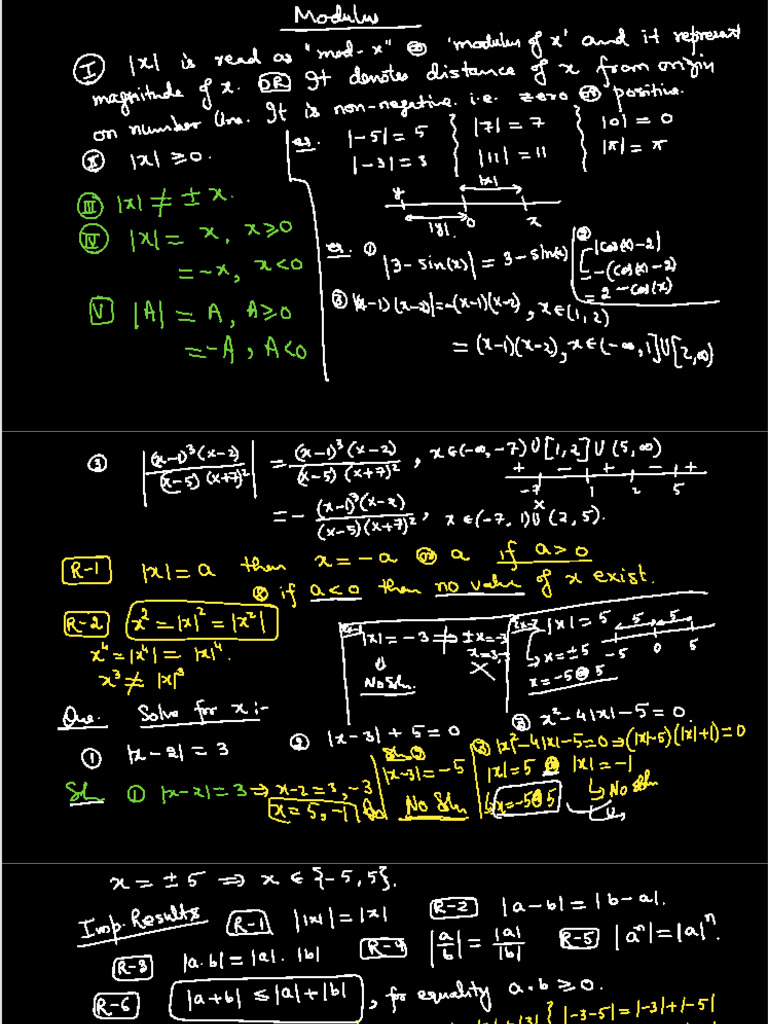 Modulus
(I) |x| is read as "mod-x" or 'modulus of x' and it represent
magnitude of x. OR It denotes distance of x from origin
on number line. It is non-negative. i.e. zero or positive.
(II) |x| ≥ 0.
ex. |-5| = 5 } |7| = 7 } |0| = 0
|-3| = 3 } |11| = 11 } |π| = π
(III) |x| ≠ ± x.
|x|
y 0 x
|y|
(IV) |x| = x, x ≥ 0
= -x, x < 0
ex. (1) |3 - sin(x)| = 3 - sin(x)
(2) |cos(x) - 2|
= -(cos(x) - 2)
= 2 - cos(x)
(V) |A| = A, A ≥ 0
= -A, A < 0
(3) |(x-1)(x-2)| = -(x-1)(x-2), x ∈ (1, 2)
= (x-1)(x-2), x ∈ (-∞, 1] U [2, ∞)
(3) |(x-1)³(x-2) / (x-5)(x+7)²| = (x-1)³(x-2) / (x-5)(x+7)², x ∈ (-∞, -7) U [1, 2] U (5, ∞)
+ - + - +
-7 1 2 5
x
= - (x-1)³(x-2) / (x-5)(x+7)², x ∈ (-7, 1) U (2, 5).
R-1 |x| = a then x = -a or a if a > 0
& if a < 0 then no value of x exist.
R-2 x² = |x|² = |x²|
x⁴ = |x⁴| = |x|⁴.
x³ ≠ |x|³
|x| = -3 ⇒ ± x = -3
x = 3, -3
No Soln.
Ex-2 |x| = 5
→ x = ± 5
x = -5 or 5
5 5
-5 0 5
Que. Solve for x :-
(1) |x - 2| = 3
(2) |x - 3| + 5 = 0
(3) x² - 4|x| - 5 = 0.
Soln (1) |x - 2| = 3 ⇒ x - 2 = 3, -3
x = 5, -1
Soln (2)
|x - 3| = -5
No Soln
(3) |x|² - 4|x| - 5 = 0 ⇒ (|x| - 5)(|x| + 1) = 0
|x| = 5 or |x| = -1
↳ x = -5 or 5
↳ No Soln
x = ± 5 ⇒ x ∈ {-5, 5}.
Imp. Results R-1 ||x|| = |x|
R-2 |a - b| = |b - a|.
R-3 |a.b| = |a|. |b|
R-4 |a/b| = |a|/|b|
R-5 |aⁿ| = |a|ⁿ.
R-6 |a + b| ≤ |a| + |b| , for equality a.b ≥ 0.
|-3-5| = |-3| + |-5|